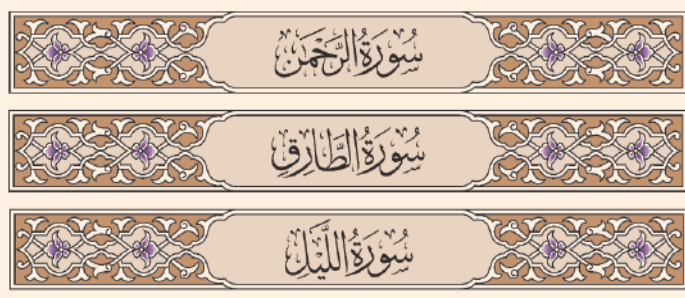 سُورَةُ الرَّحْمَٰن
سُورَةُ الطَّارِقِ
سُورَةُ اللَّيْلِ